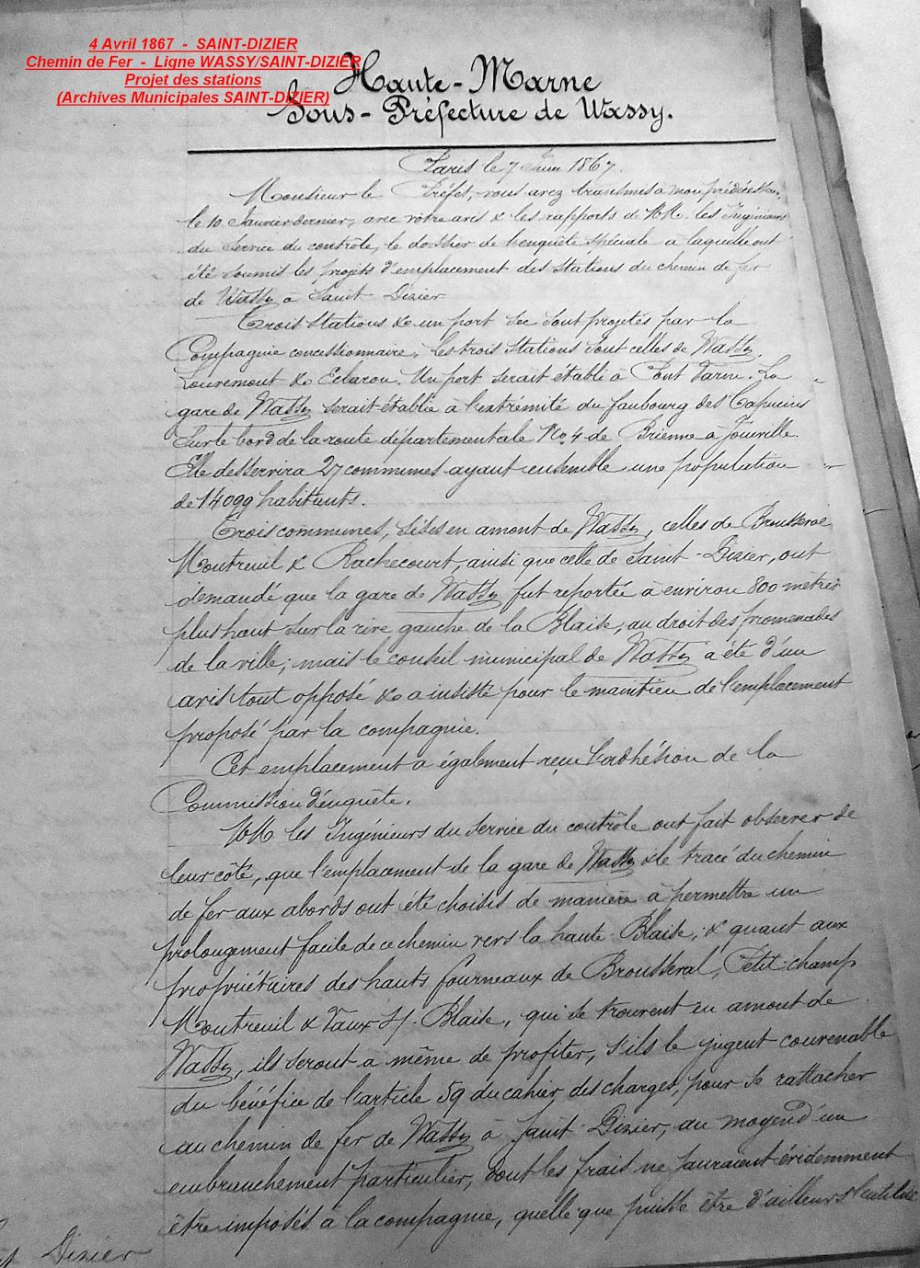 4 Avril 1867 - SAINT-DIZIER
Chemin de Fer - Ligne WASSY/SAINT-DIZIER
Projet des stations
(Archives Municipales SAINT-DIZIER)
Haute-Marne
Sous-Préfecture de Wassy.
Paris le 7 Juin 1867.
Monsieur le Préfet, vous avez transmis à mon prédécesseur,
le 10 Janvier dernier, avec votre avis & les rapports de MM. les Ingénieurs
du Service du contrôle, le dossier de l'enquête spéciale à laquelle ont
été soumis les projets d'emplacement des Stations du chemin de fer
de Wassy à Saint-Dizier
Trois Stations & un port sec sont projetés par la
Compagnie concessionnaire. Les trois Stations sont celles de Wassy,
Louvemont & Eclaron. Un port serait établi à Pont Varin. La
gare de Wassy serait établie à l'extrémité du faubourg des Capucins
sur le bord de la route départementale No. 4 de Brienne à Joinville.
Elle desservira 27 communes ayant ensemble une population
de 14099 habitants.
Trois communes, sises en amont de Wassy, celles de Brousseval
Montreuil & Rachecourt, ainsi que celle de Saint-Dizier, ont
demandé que la gare de Wassy fut reportée à environ 800 mètres
plus haut sur la rive gauche de la Blaise, au droit des promenades
de la ville; mais le conseil municipal de Wassy a été d'un
avis tout opposé & a insisté pour le maintien de l'emplacement
proposé par la compagnie.
Cet emplacement a également reçu l'adhésion de la
Commission d'enquête.
MM les Ingénieurs du Service du contrôle ont fait observer de
leur côté, que l'emplacement de la gare de Wassy & le tracé du chemin
de fer aux abords ont été choisis de manière à permettre un
prolongement facile de ce chemin vers la haute-Blaise; & quant aux
propriétaires des hauts fourneaux de Brousseval, Petit-champ
Montreuil & Vaux S/. Blaise, qui se trouvent en amont de
Wassy, ils seront à même de profiter, s'ils le jugent convenable
du bénéfice de l'article 59 du cahier des charges, pour se rattacher
au chemin de fer de Wassy à Saint-Dizier, au moyen d'un
embranchement particulier, dont les frait ne sauraient évidemment
être imposés à la compagnie, quelle que puisse être d'ailleurs l'utilité
Dizier